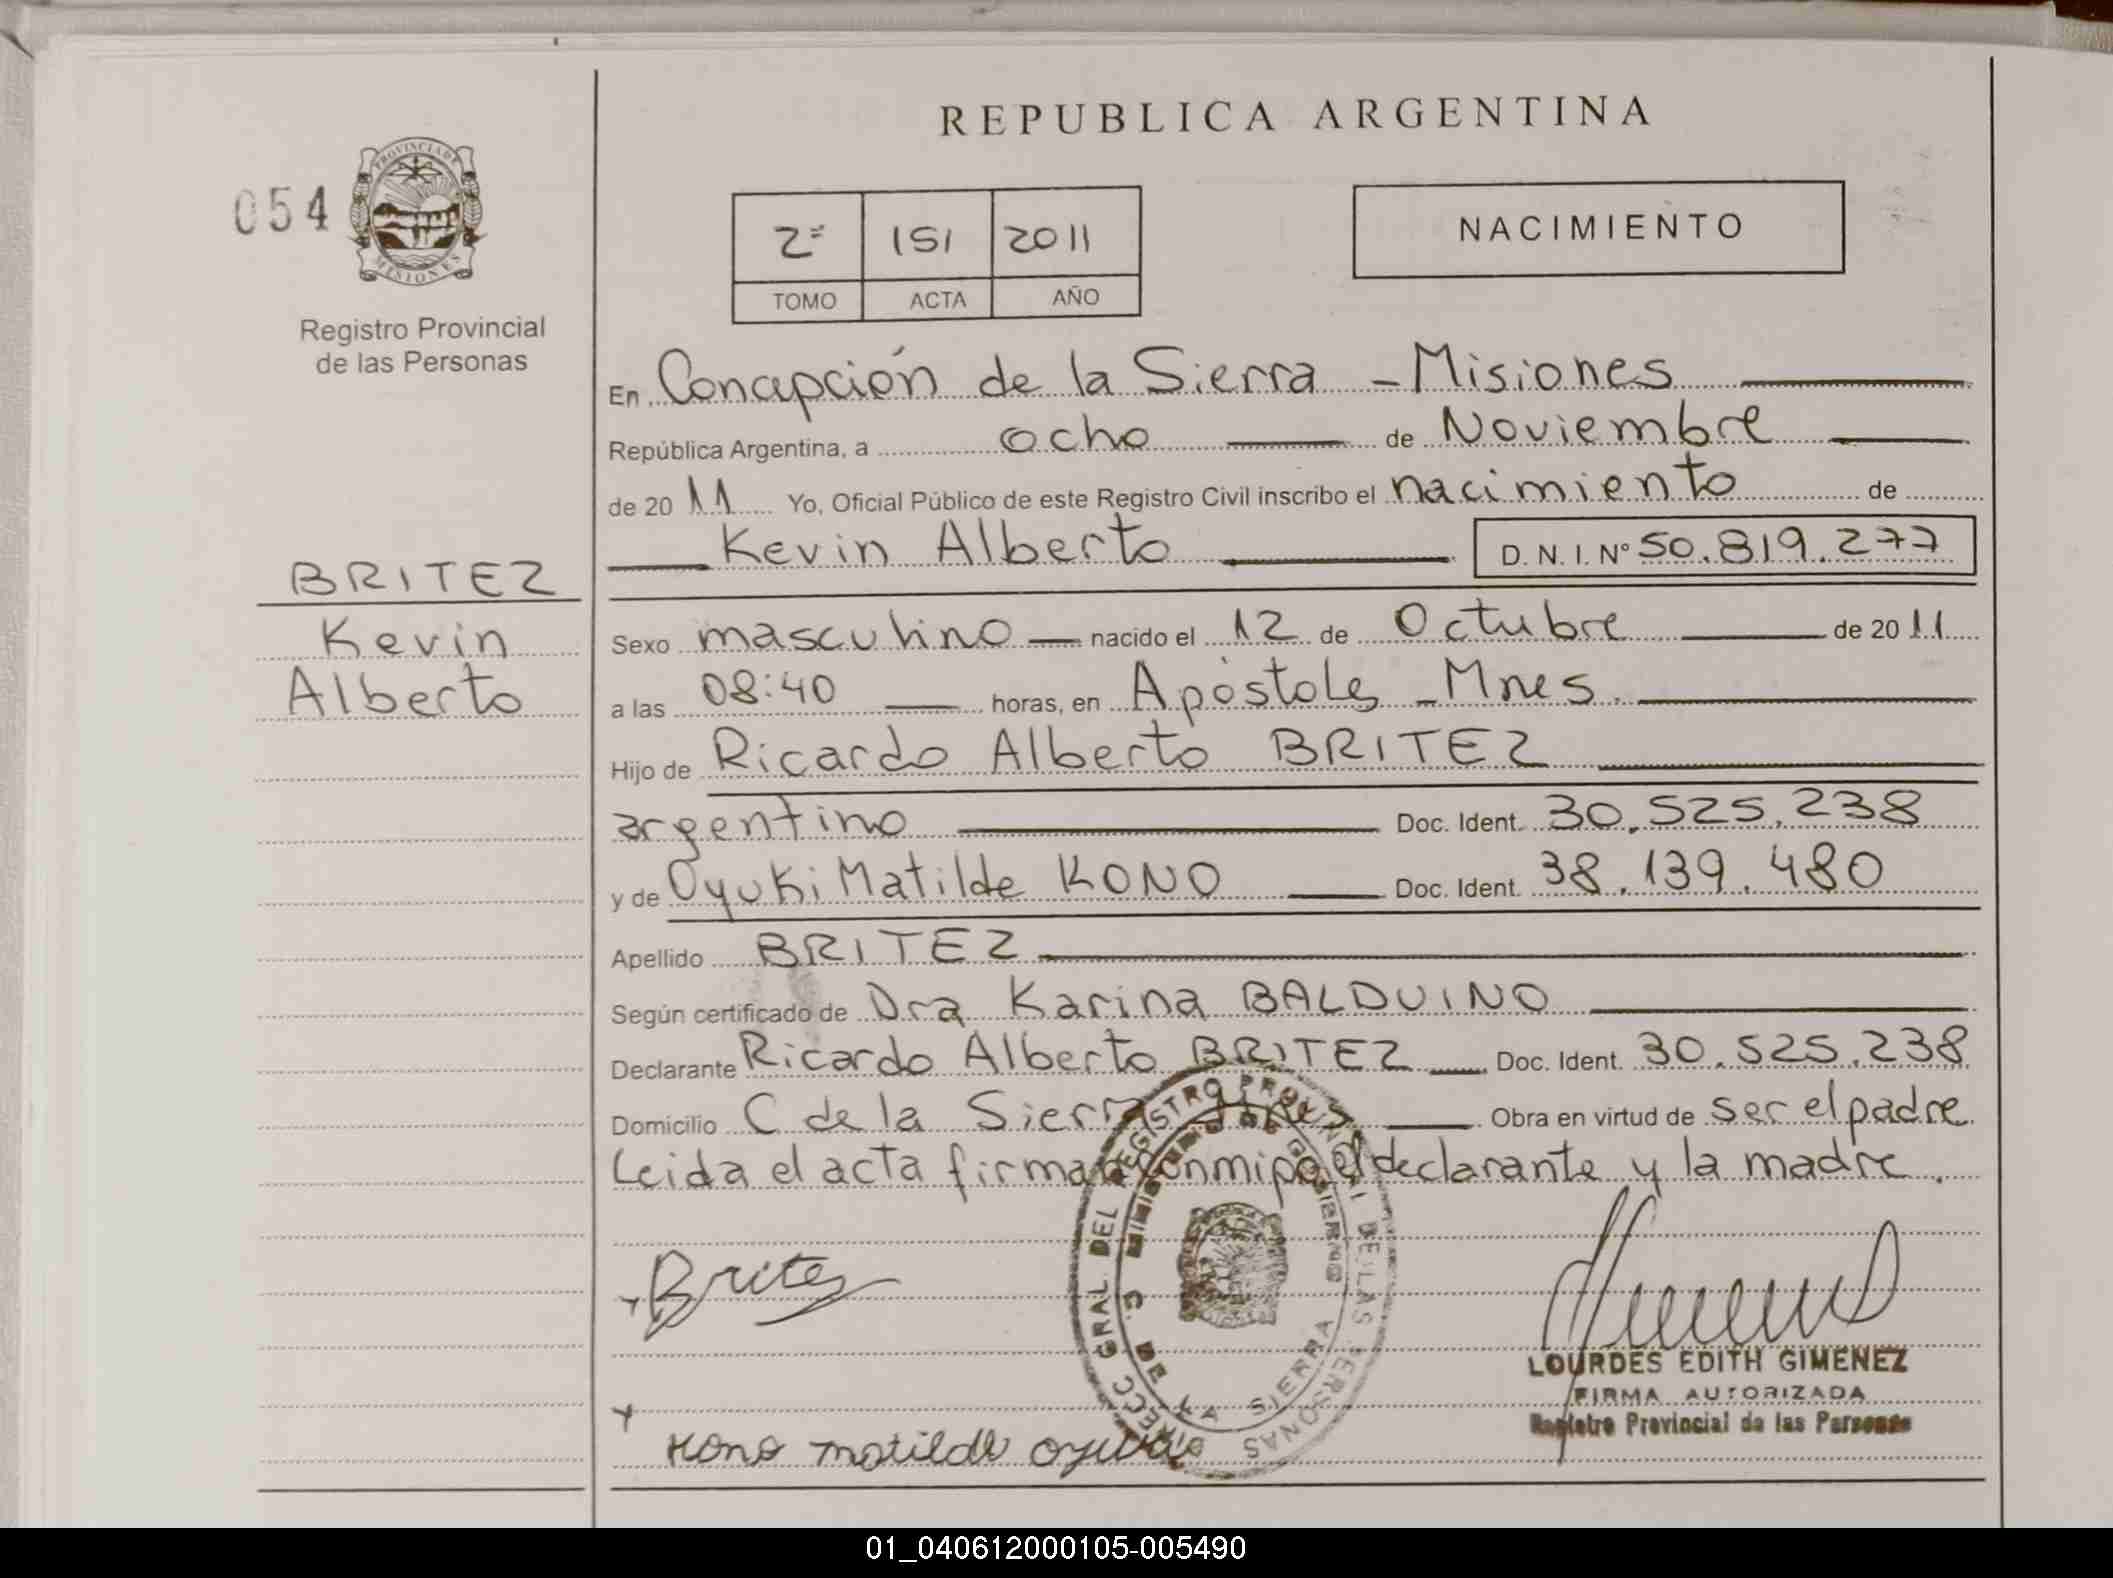 REPUBLICA ARGENTINA
054
PROVINCIA DE
MISIONES
Registro Provincial
de las Personas
2º 151 2011
TOMO ACTA AÑO
NACIMIENTO
BRITEZ
Kevin
Alberto
En Concepción de la Sierra - Misiones
República Argentina, a ocho de Noviembre
de 2011 Yo, Oficial Público de este Registro Civil inscribo el nacimiento de
Kevin Alberto D. N. I. Nº 50.819.277
Sexo masculino nacido el 12 de Octubre de 2011
a las 08:40 horas, en Apóstoles - Mnes.
Hijo de Ricardo Alberto BRITEZ
argentino Doc. Ident. 30.525.238
y de Oyuki Matilde KONO Doc. Ident. 38.139.480
Apellido BRITEZ
Según certificado de Dra Karina BALDUINO
Declarante Ricardo Alberto BRITEZ Doc. Ident. 30.525.238
Domicilio C de la Sierra Mnes. Obra en virtud de ser el padre
Leida el acta firman conmigo el declarante y la madre.
DIRECC GRAL. DEL REGISTRO PROVINCIAL DE LAS PERSONAS
MINISTERIO DE GOBIERNO
C. DE LA SIERRA
Britez
LOURDES EDITH GIMENEZ
FIRMA AUTORIZADA
Registro Provincial de las Personas
Kono Matilde
01_040612000105-005490